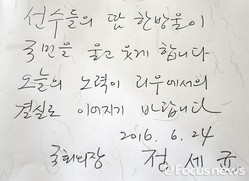 선수들의 땀 한방울이
국민을 울고 웃게 합니다
오늘의 노력이 리우에서의
결실로 이어지기 바랍니다
2016. 6. 24
국회의장 정세균
Focusnews